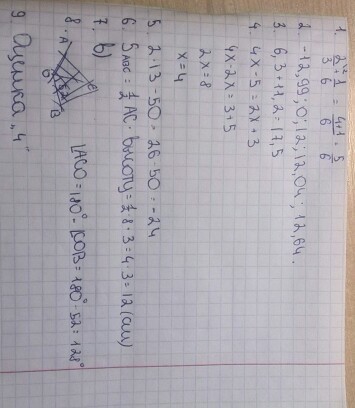 1. 2/3 + 1/6 = 4+1/6 = 5/6
2. -12,99; 0; 12; 12,04; 12,64.
3. 6,3 + 11,2 = 17,5
4. 4x - 5 = 2x + 3
4x - 2x = 3 + 5
2x = 8
x = 4
5. 2·13 - 50 = 26-50 = -24
6. S ABC = 1/2 AC · высоту = 1/2 · 8 · 3 = 4 · 3 = 12 (см)
7. b)
8. A C O B 52° ∠ACO = 180° - ∠COB = 180° - 52 = 128°
9 Оценка „4"